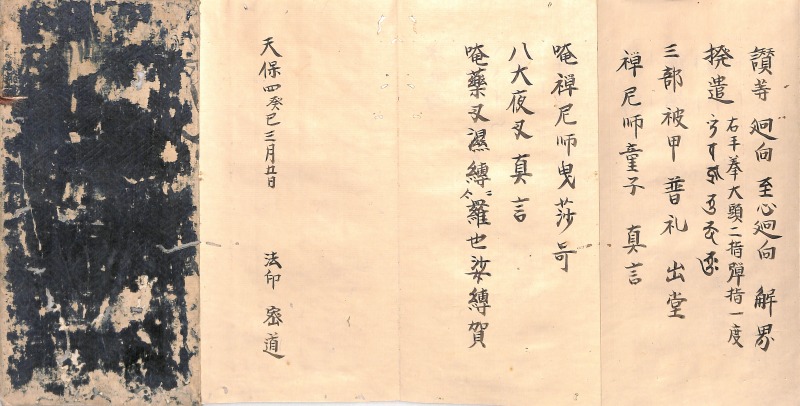 讃等 廻向 至心廻向 解界
撥遣 右手拳大頭二指弾指一度
三部 被甲 普礼 出堂
禅尼師童子 真言
唵禅尼師曳莎訶
八大夜叉 真言
唵藥叉濕縛羅也娑縛賀
天保四癸巳三月廿日 法印 密道